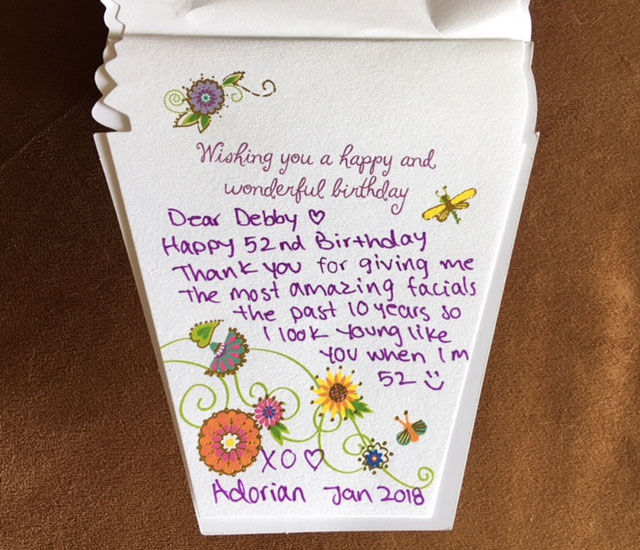 Wishing you a happy and
wonderful birthday
Dear Debby ♡
Happy 52nd Birthday
Thank you for giving me
the most amazing facials
the past 10 years so
I look young like
you when Im
52 ☺
XO♡
Adorian Jan 2018